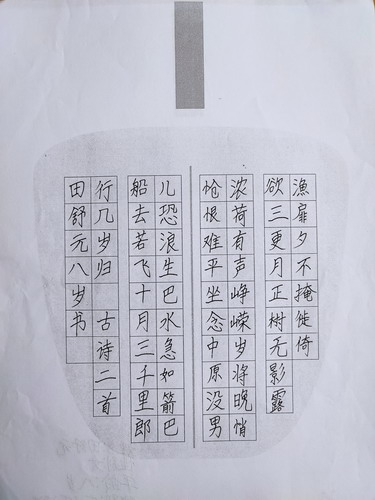 渔扉夕不掩徙倚
欲三更月正树无影露
浓荷有声峥嵘岁将晚悄
怆恨难平坐念中原没男
儿恐浪生巴水急如箭巴
船去若飞十月三千里郎
行几岁归 古诗二首
田舒元八岁书